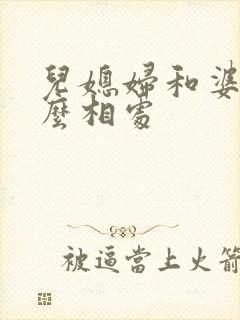 兒媳婦和婆
麼相處
被逼當上火箭